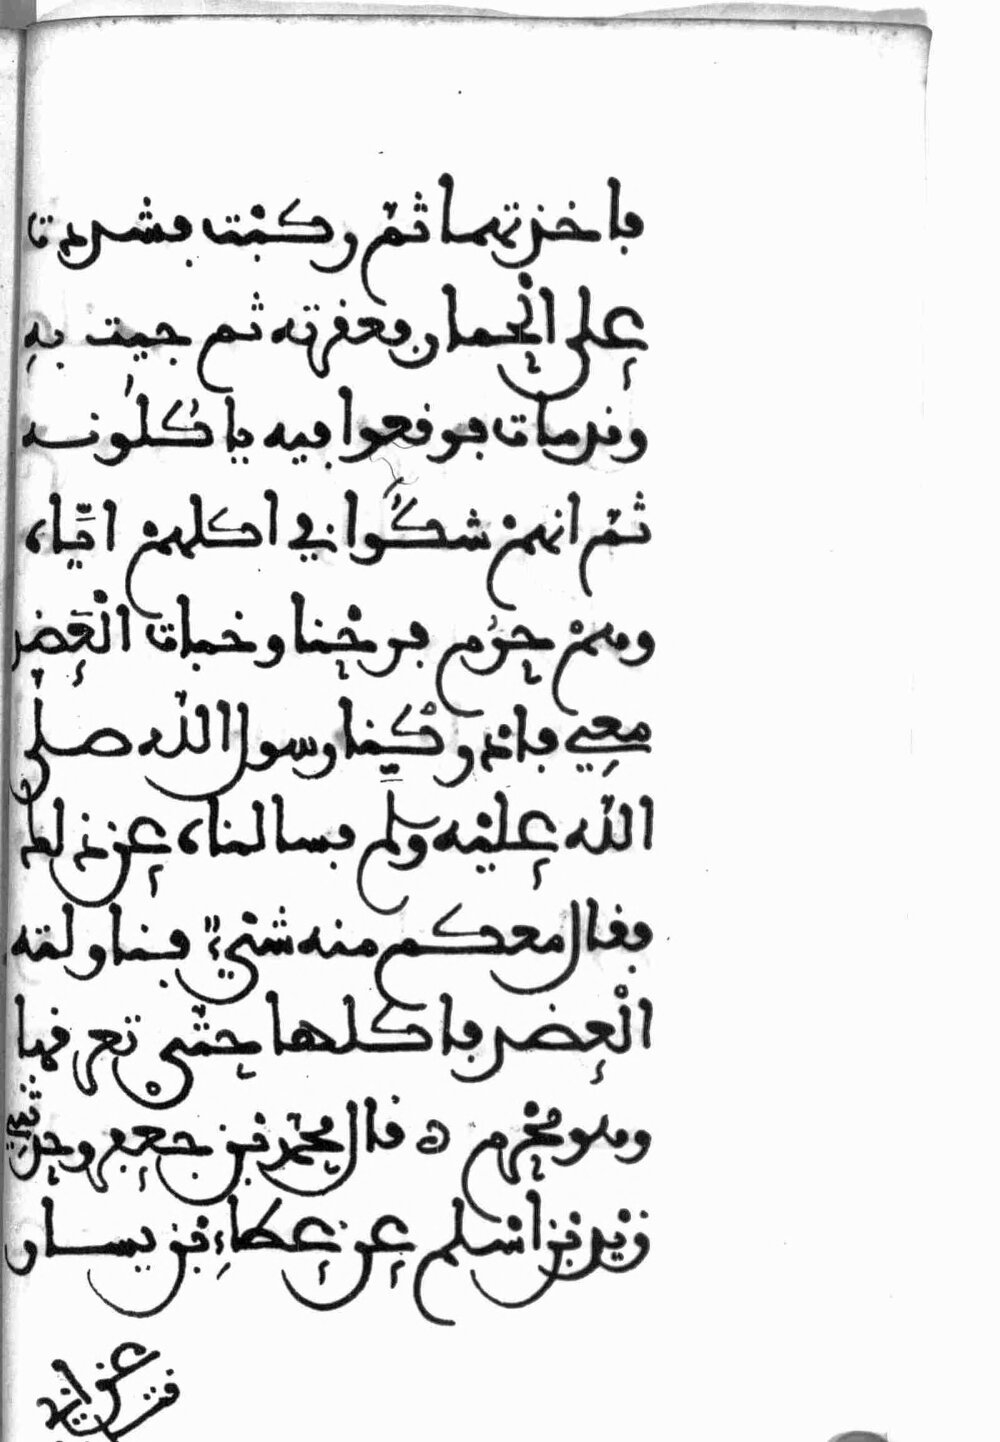 فاخذتهما ثم ركبت فشددت
على الحمار فعقرته ثم جيت به
وقد مات فوقعوا فيه ياكلونه
ثم انهم شكوا في اكلهم اياه
وهم حرم فرحنا وخبات العضد
معي فادركنا رسول الله صلى
الله عليه وسلم فسالناه عن ذلك
فقال معكم منه شيء فناولته
العضد فاكلها حتى تعرقها
وهو محرم ه قال محمد بن جعفر وحدثني
زيد بن اسلم عن عطاء بن يسار
عن ابي
قتا